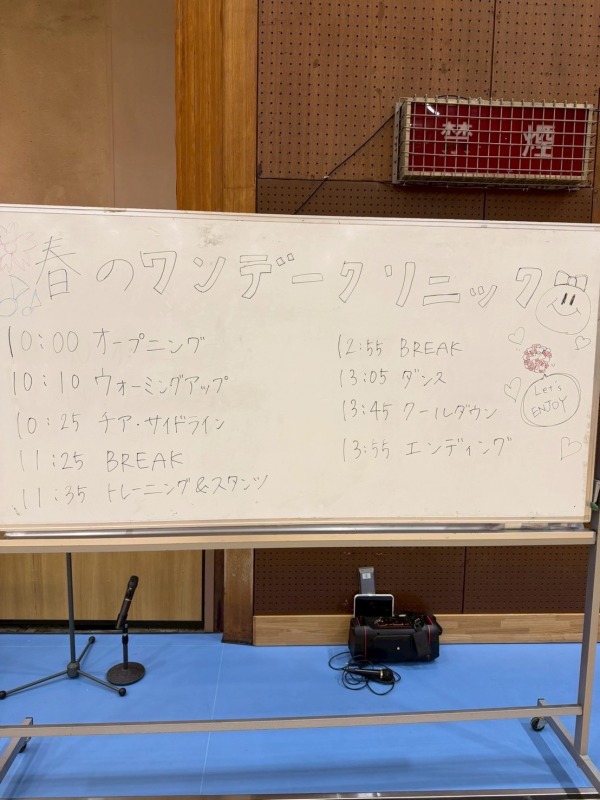 禁煙
春のワンデークリニック
10:00 オープニング
10:10 ウォーミングアップ
10:25 チア・サイドライン
11:25 BREAK
11:35 トレーニング&スタンツ
12:55 BREAK
13:05 ダンス
13:45 クールダウン
13:55 エンディング
Let's
ENJOY